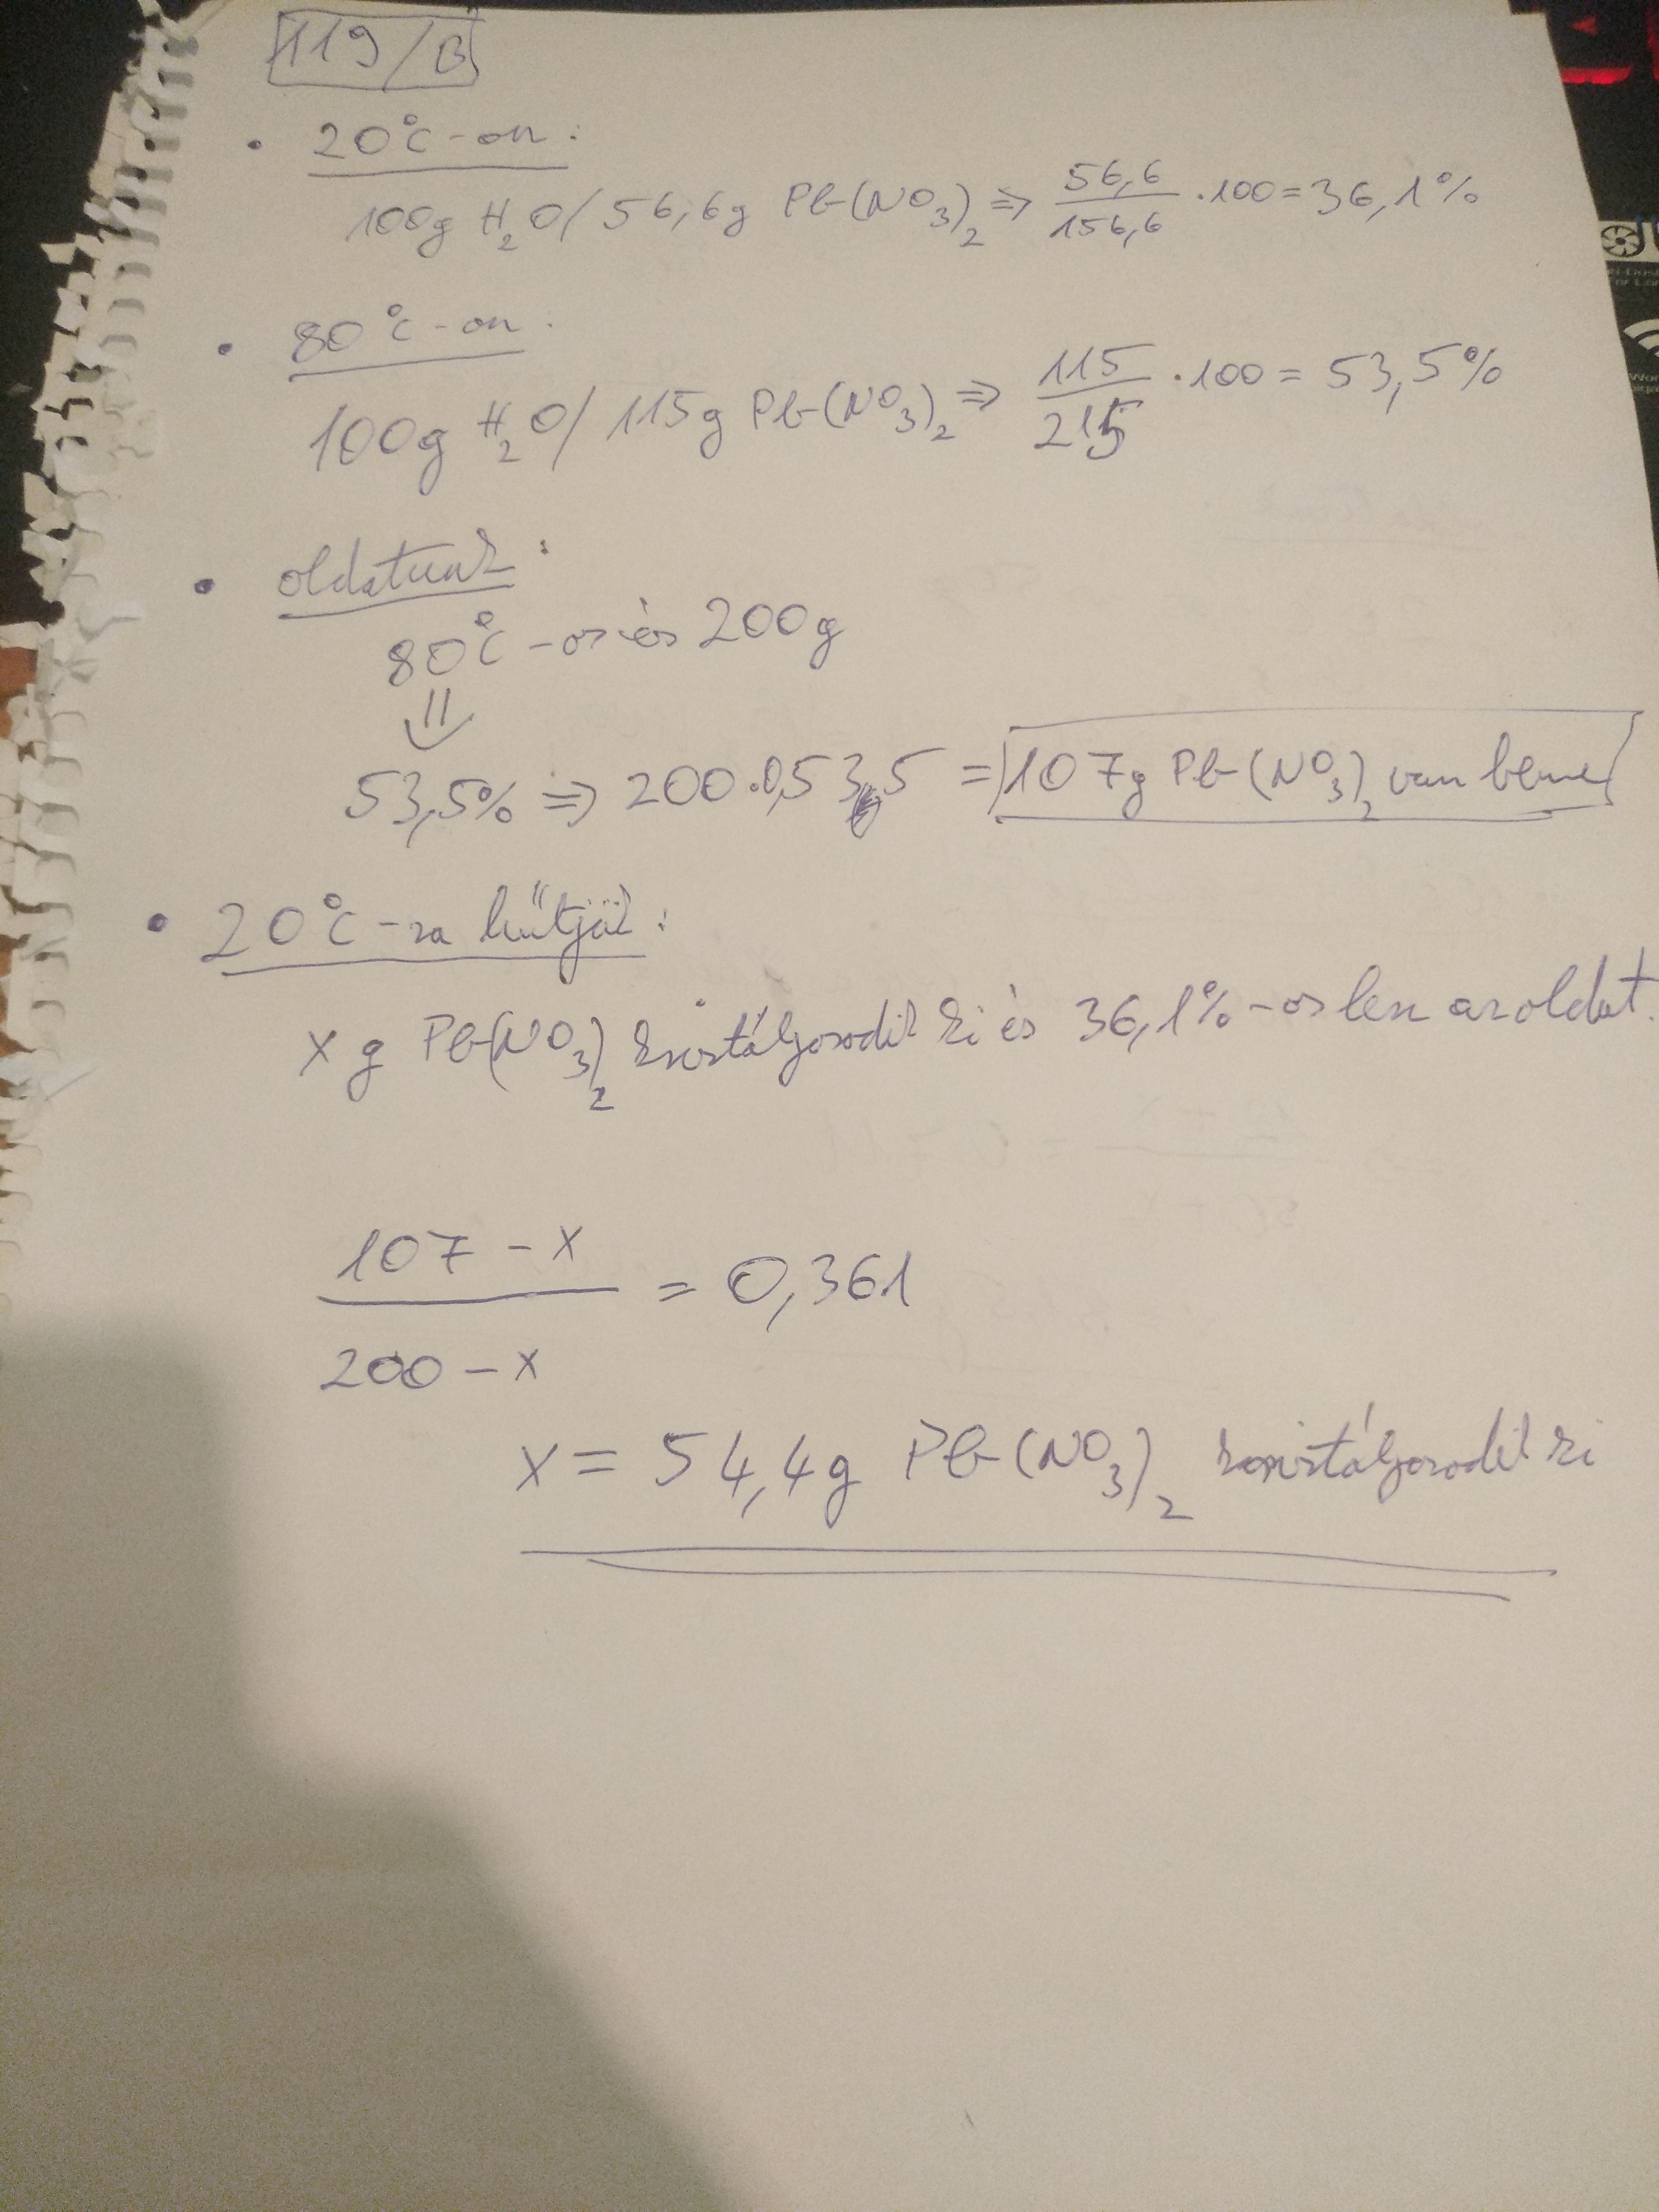 119/B
• 20°C-on:
100g H₂O/56,6g Pb(NO₃)₂ ⇒ 56,6/156,6 · 100 = 36,1%
• 80°C-on:
100g H₂O/115g Pb(NO₃)₂ ⇒ 115/215 · 100 = 53,5%
• oldatunk:
80°C-os és 200g
⇓
53,5% ⇒ 200·0,535 = 107g Pb(NO₃)₂ van benne
• 20°C-ra hűtjük:
x g Pb(NO₃)₂ kristályosodik ki és 36,1%-os lesz az oldat.
107 - x
/ 200 - x = 0,361
x = 54,4g Pb(NO₃)₂ kristályosodik ki